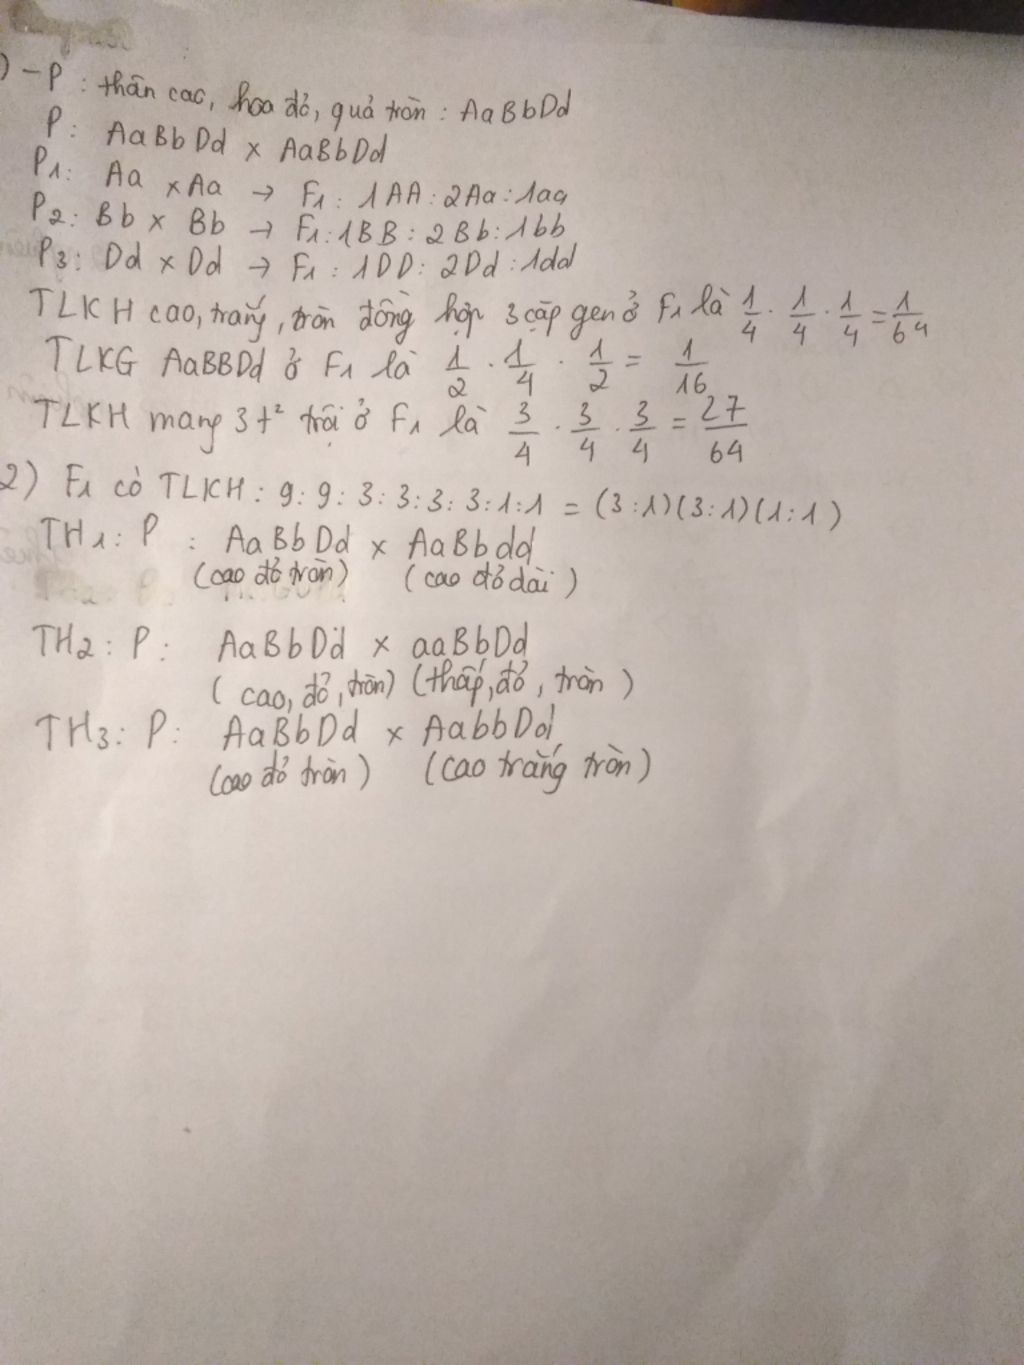 ) - P : thân cao, hoa đỏ, quả tròn : AaBbDd
P: AaBbDd x AaBbDd
P1: Aa x Aa → F1 : 1AA : 2Aa : 1aa
P2: Bb x Bb → F1: 1BB : 2Bb : 1bb
P3: Dd x Dd → F1 : 1DD : 2Dd : 1dd
TLKH cao, trắng, tròn đồng hợp 3 cặp gen ở F1 là 1/4 . 1/4 . 1/4 = 1/64
TLKG AaBBDd ở F1 là 1/2 . 1/4 . 1/2 = 1/16
TLKH mang 3 t² trội ở F1 là 3/4 . 3/4 . 3/4 = 27/64
2) F1 có TLKH : 9 : 9 : 3 : 3 : 3 : 3 : 1 : 1 = (3:1)(3:1)(1:1)
TH1: P : AaBbDd x AaBbdd
(cao đỏ tròn) (cao đỏ dài)
TH2: P: AaBbDd x aaBbDd
(cao, đỏ, tròn) (thấp, đỏ, tròn)
TH3: P: AaBbDd x AabbDd
(cao đỏ tròn) (cao trắng tròn)